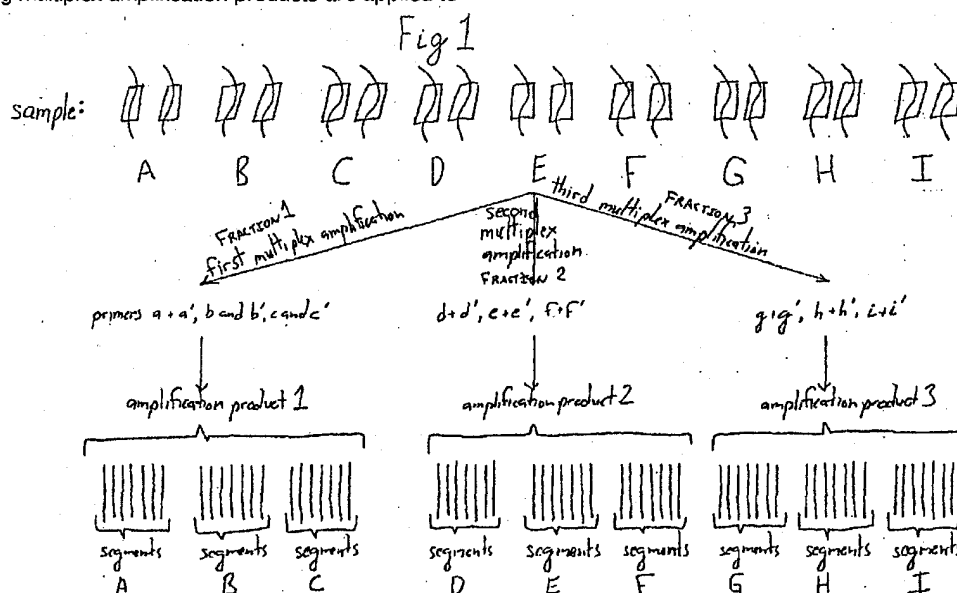 g multiplex amplification products are applied to
Fig 1
sample:
A B C D E F G H I
FRACTION 1
first multiplex amplification
second
multiplex
amplification
FRACTION 2
FRACTION 3
third multiplex amplification
primers a + a', b and b', c and c'
d+d', e+e', f+f'
g+g', h+h', i+i'
amplification product 1
amplification product 2
amplification product 3
segments segments segments segments segments segments segments segments segments
A B C D E F G H I